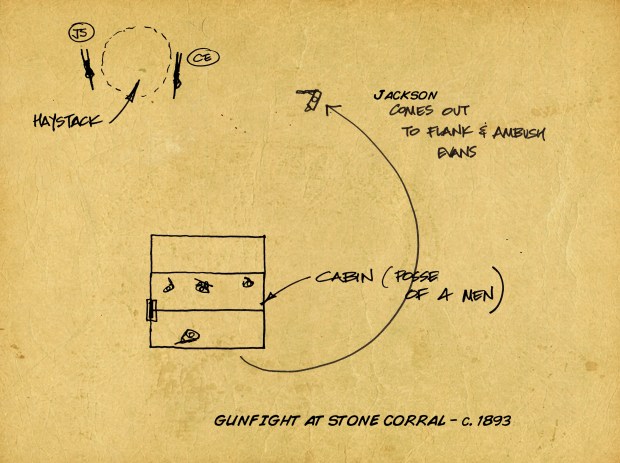 JS
CE
HAYSTACK
JACKSON
COMES OUT
TO FLANK & AMBUSH
EVANS
CABIN (POSSE
OF 4 MEN)
GUNFIGHT AT STONE CORRAL - c. 1893